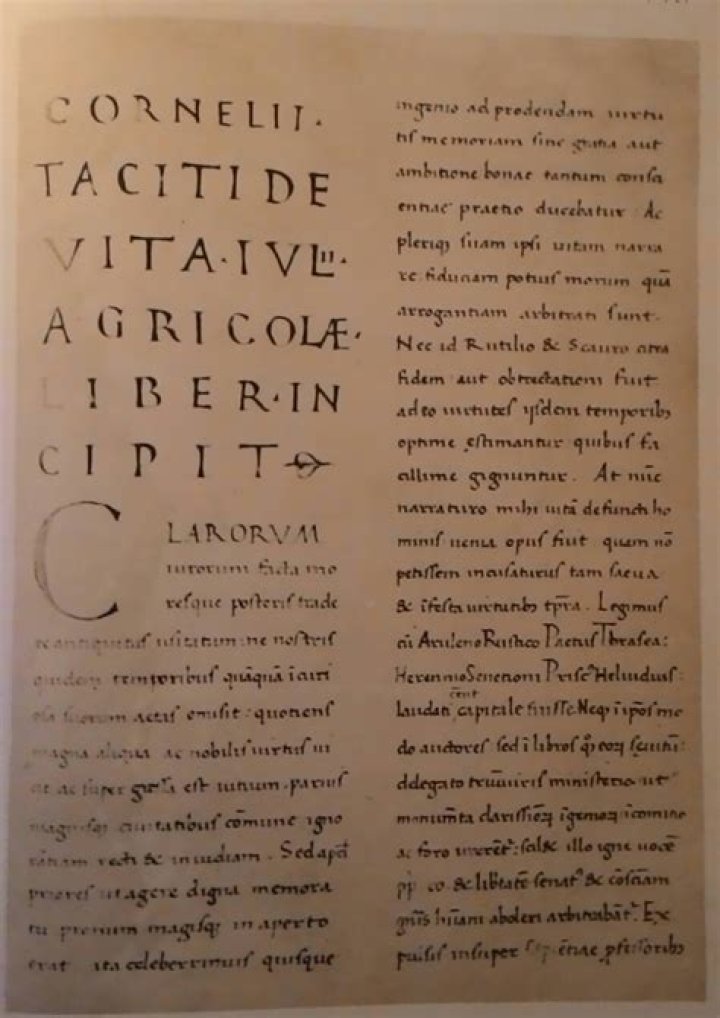 CORNELII·
TACITI DE
VITA·IVLII·
AGRICOLÆ·
LIBER·IN
CIPIT
CLARORVM
uirorum facta mo
resque posteris trade
re antiquitus usitatum ne nostris
quidem temporibus quāquā īcuri
osa suorum aetas omisit: quotiens
magna aliqua ac nobilis uirtus ui
cit ac super gressa est uitium. paruis
magnisq; ciuitatibus cōmune igno
rantiam recti & inuidiam. Sed apud
priores ut agere digna memora
tu pronum magisq; in aperto
erat ita celeberrimus quisque
ingenio ad prodendam uirtu
tis memoriam sine gratia aut
ambitione bonae tantum consci
entiae praetio ducebatur. Ac
pleriq; suam ipsi uitam narra
re fiduciam potius morum quā
arrogantiam arbitrati sunt.
Nec id Rutilio & Scauro citra
fidem aut obtrectationi fuit
adeo uirtutes ijsdem temporib;
optime ęstimantur quibus fa
cillime gignuntur. At nūc
narraturo mihi uitā defuncti ho
minis uenia opus fuit quam nō
petissem incusaturus tam saeua
& īfesta uirtutib; tp̄ra. Legimus
cū Aruleno Rustico Paetus Thrasea:
Herennio Senecioni Prisc' Heluidius:
laudati cent capitale fuisse. Neq; ī ip̄os mo
do auctores sed ī libros
ddelegato ministerio ut
monum̄ta clarissi īgenior̄ ī comitio
ac foro scil& illo igne uocē
pp̄ ro. & lib̄tatē senat' & cōsciam
aboleri arbitrabāt'. Ex
pulsis insuper sapiēntiae p̄fessorib;